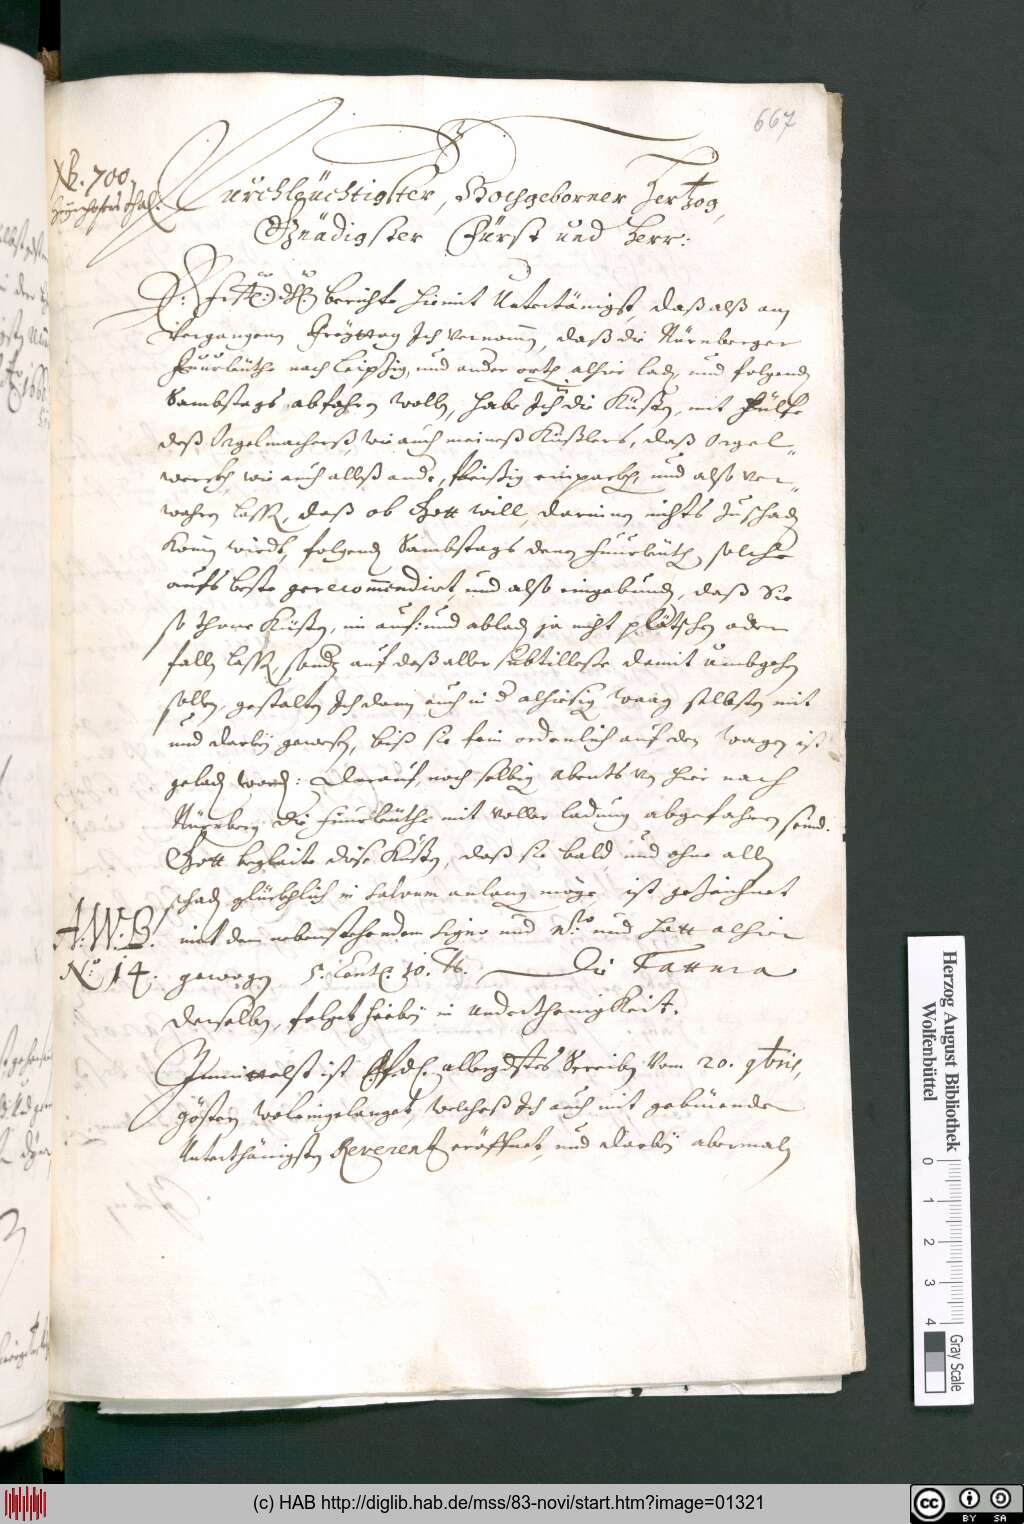 667
N. 700.
Durchleüchtigster, Hochgeborner Hertzog,
Gnädigster Fürst und Herr:
berichte hiemit Untertänigst, daß alß am
Vergangenen Freÿttag Ich vernomen, daß die Nürnberger
Fuurleüthe nach Leipzig, und ander orth alhier laden, und folgenden
Sambstags abfahren wollen, habe Ich die Küsten, mit Hülfe
deß Orgelmacherß, wie auch meineß Küstlers, daß Orgel„
werckh, wie auch alleß ander, fleißig einpackhen, und also ver„
wahren lassen, daß ob Gott will, darinnen nichts zu schaden
komen wirdt, folgenden Sambstags denen Fuurleüthen solche
aufs beste gerecommendirt, und also eingebunden, daß Sie
so thane Küsten, im auf: und abladen ja nicht plätschen oder
fallen lassen, sondern auf daß aller subtilleste damit umbgehen
sollen, gestalten Ich dann auch in der alhiesigen Waag selbsten mit
und darbeÿ gewesen, biß sie fein ordenlich auf den wagen ist
geladen worden: Darauf, noch selbigen abents von hier nach
Nürnberg die Fuurleüthe mit voller ladung abgefahren seind.
Gott begleite diese Küsten, daß sie bald, und ohne allen
schaden glückhlich in salvum anlangen möge, ist gezeichnet
A:W:B. mit dem nebenstehenden Signo und N.º und hatt alhier
N.º 14. gewogen 5. Centr 30. ℔. Die Fattura
derselben, folget hiebeÿ in Underthenigkeit.
Immittelst ist E. F. D. allergdstes Screiben Vom 20. 9bris,
gösteren, wol eingelanget, welches Ich auch mit gebüender
Unterthänigsten Reverentz eröffnet, und darbeÿ abermalen
A:W:B.
Nº 14.
Herzog August Bibliothek
Wolfenbüttel
0 1 2 3 4
Gray Scale
(c) HAB http://diglib.hab.de/mss/83-novi/start.htm?image=01321
cc BY SA